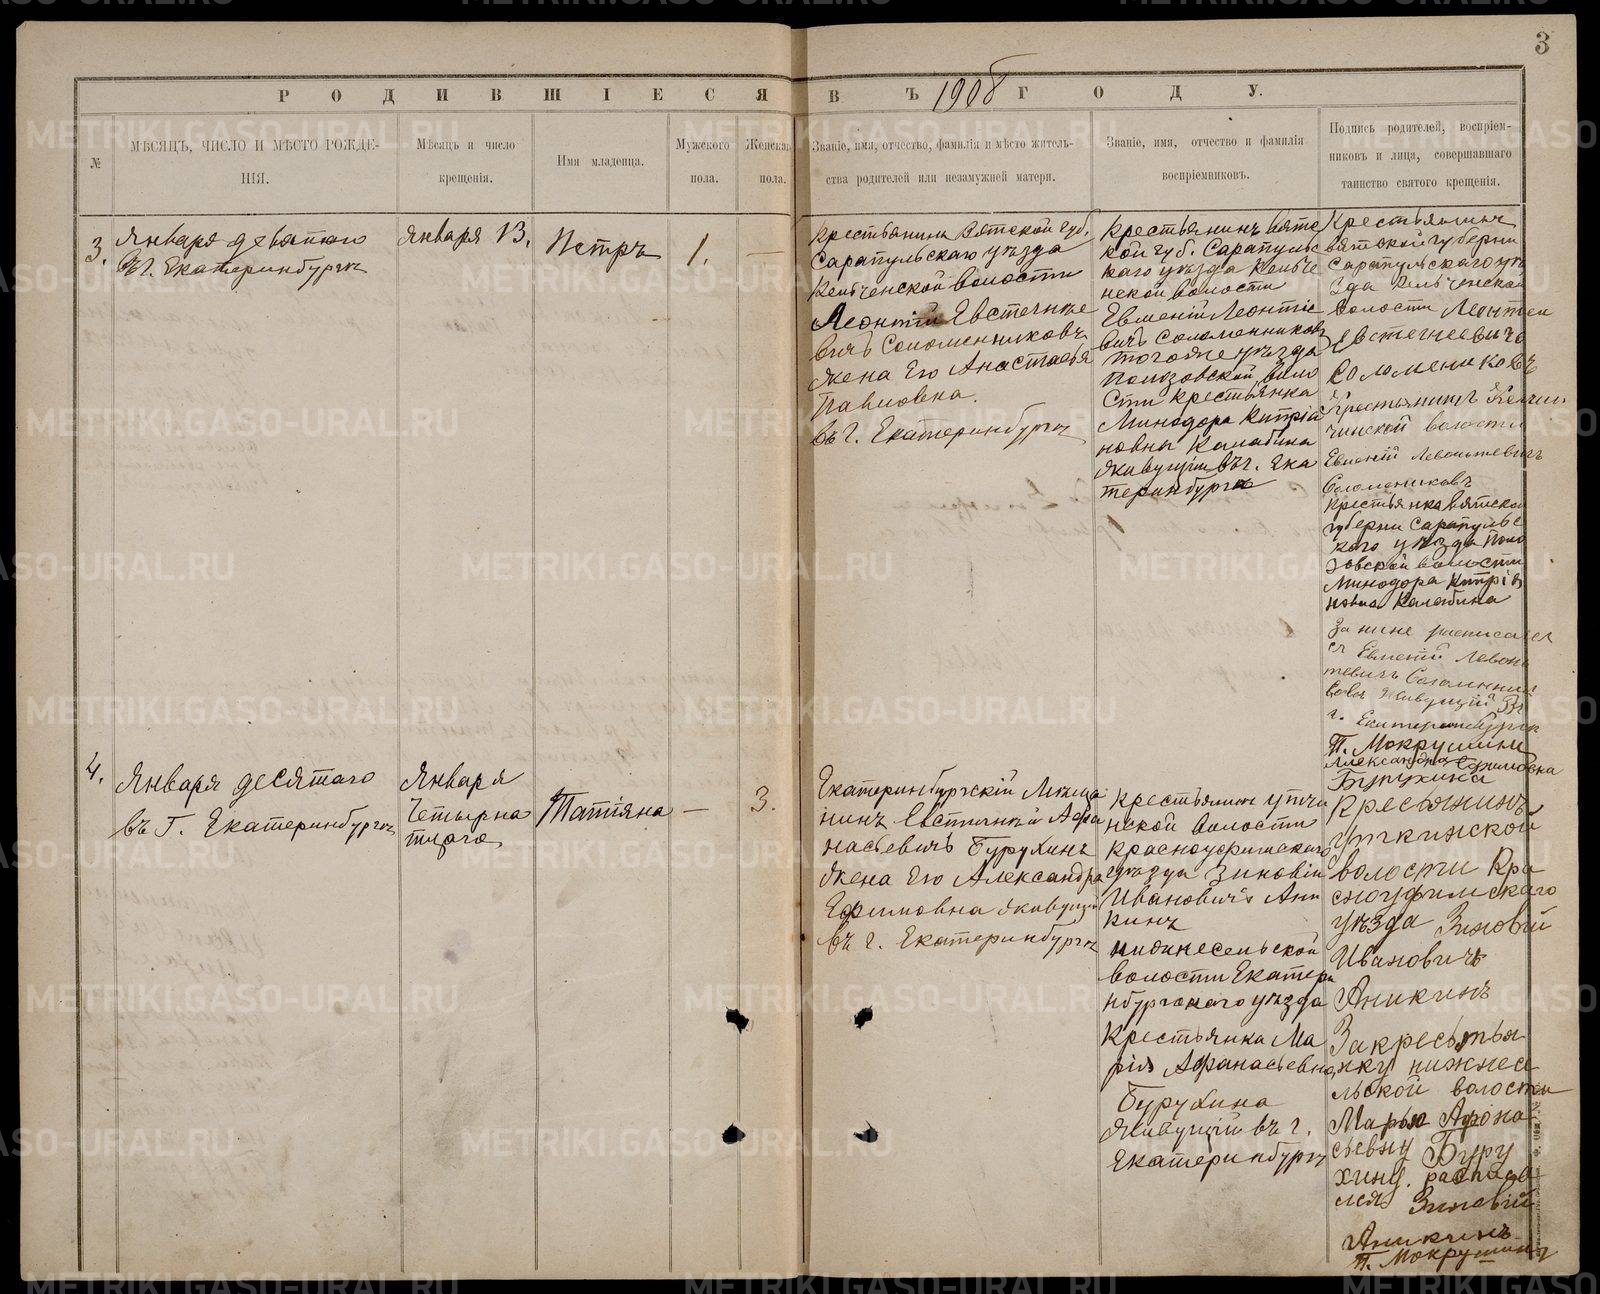 3
РОДИВШІЕСЯ ВЪ 1908 ГОДУ.
№
МѢСЯЦЪ, ЧИСЛО И МѢСТО РОЖДЕ-
НІЯ.
Мѣсяцъ и число
крещенія.
Имя младенца.
Мужского
пола.
Женскаго
пола.
Званіе, имя, отчество, фамилія и мѣсто житель-
ства родителей или незамужней матери.
Званіе, имя, отчество и фамилія
воспріемниковъ.
Подпись родителей, воспріем-
никовъ и лица, совершавшаго
таинство святого крещенія.
3.
Января девятаго
въ г. Екатеринбургѣ
Января 13.
Петръ
1.
—
Крестьянинъ Вятской губ.
Сарапульскаго уѣзда
Кельченской волости
Леонтій Евстигнѣе
вичъ Соломенниковъ
жена Его Анастасья
Павловна.
въ г. Екатеринбургѣ
Крестьянинъ Вятс
кой губ. Сарапульс
каго уѣзда Кельче
нской волости
Евменій Леонтіе
вичъ Соломенниковъ
тогоже уѣзда
Полозовской воло
сти крестьянка
Минодора Кипріа
новна Калабина
живущіи въ г. Ека
теринбургѣ
Крестьянинъ
вятской губерни
Сарапульскаго уѣ
зда Кельчинской
волости Леонтей
Евстегнеевичъ
Соломениковъ
Крестьянинъ
чинской волости
Евменій Левонтевичъ
Соломениковъ
крестьянка Вятской
губерни Сарапульс
каго уѣзда Поло
зовской волости
Минодора Кипріа
новна Калабина
За нине расписался
Евменій Левон
тевичъ Соломинни
ковъ живущій въ
г. Екатеринбургѣ
П. Мокрушинъ
Александра Ефимовна
Бурухина
4.
Января десятаго
въ г. Екатеринбургѣ
Января
Четырна
тцаго
Татіяна
—
3.
Екатеринбургскій Мѣща
нинъ Евстигнѣй Афа
насьевичъ Бурухинъ
жена Его Александра
Ефимовна живущіи
въ г. Екатеринбургѣ
Крестьянинъ утчи
нской волости
Красноуфимскаго
уѣзда Зиновій
Ивановичъ Ани
кинъ
нижнесельской
волости Екатери
нбургскаго уѣзда
Крестьянка Ма
рія Афанасьевна
Бурухина
живущій въ г.
Екатеринбургѣ
Крестьянинъ
уткинской
волости Кра
сноуфимскаго
уѣзда Зиновій
Ивановичъ
Аникинъ
За крестья
нку нижнесе
льской волости
Марью Афона
сьевну Буру
хину. расписа
лся Зиновій
Аникинъ
П. Мокрушинъ